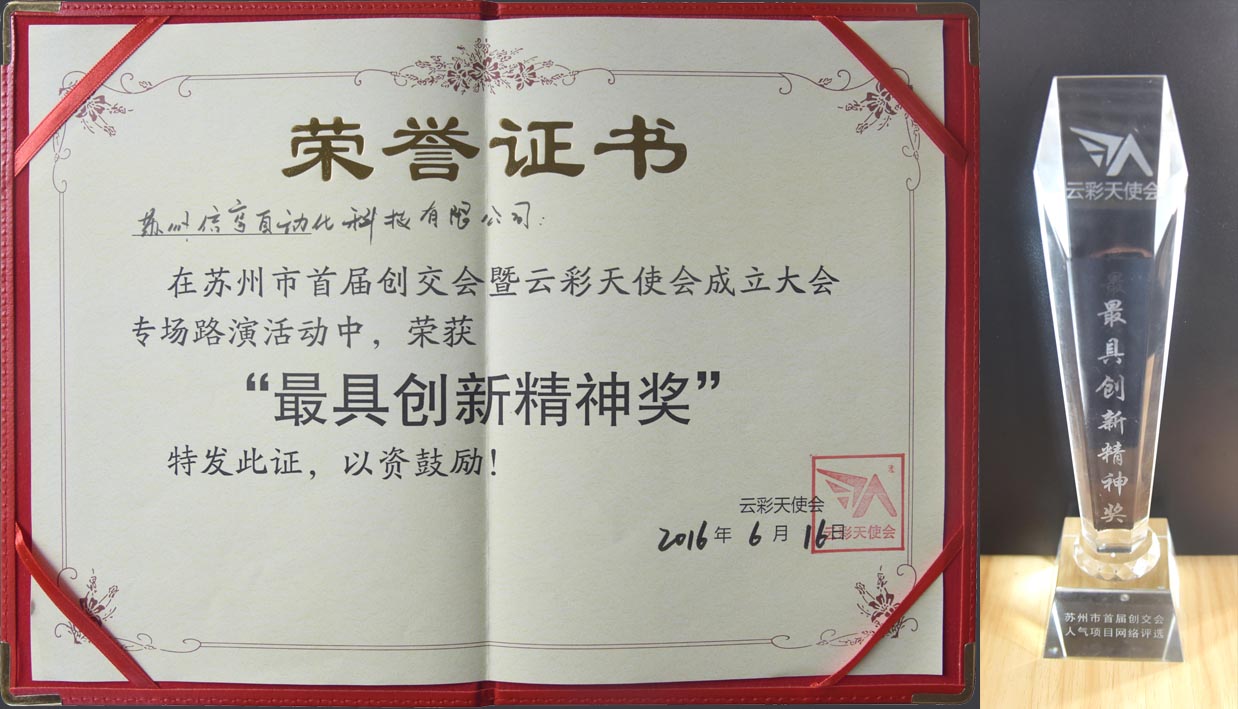 荣誉证书
苏州信亨自动化科技有限公司：
在苏州市首届创交会暨云彩天使会成立大会
专场路演活动中，荣获
“最具创新精神奖”
特发此证，以资鼓励！
云彩天使会
2016年6月16日
云彩天使会
云彩天使会
最具创新精神奖
苏州市首届创交会
人气项目网络评选